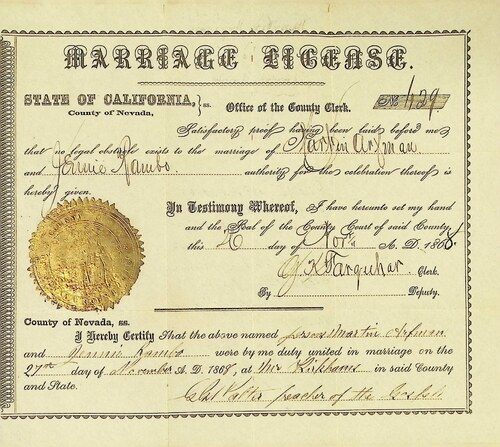 MARRIAGE LICENSE.
STATE OF CALIFORNIA, } ss.
County of Nevada,
Office of the County Clerk.
No. 429
Satisfactory proof having been laid before me
that no legal obstacle exists to the marriage of Martin Arfman.
and Jennie Rambo. authority for the celebration thereof is
hereby given.
In Testimony Whereof, I have hereunto set my hand
and the Seal of the County Court of said County
this day of Nov. A. D. 1868
Farquhar Clerk.
By Deputy.
County of Nevada, ss.
I Hereby Certify That the above named Martin Arfman
and Jennie Rambo were by me duly united in marriage on the
27th day of November A. D. 1868, at Mr Kirkhams in said County
and State.
preacher of the Gospel